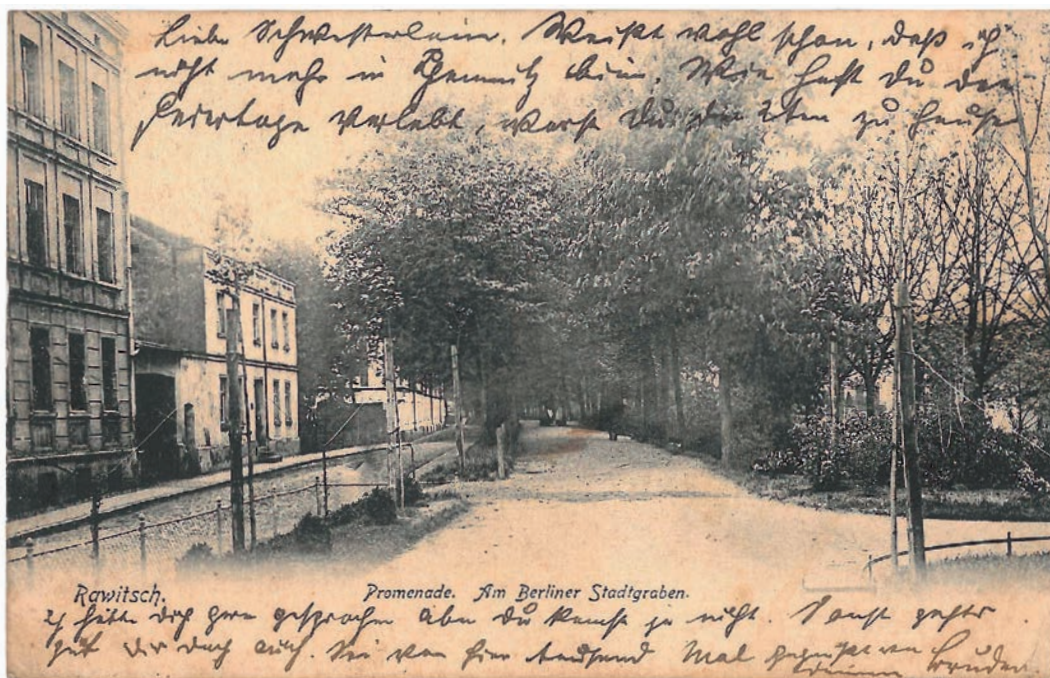 Liebe Schwesterlein. Weißt wohl schon, daß ich
nicht mehr in Chemnitz bin. Wie hast Du die
Feiertage verlebt, warst Du den 2ten zu Hause
Rawitsch. Promenade. Am Berliner Stadtgraben.
Ich hätte Dich gern gesprochen aber Du kamst ja nicht. Sonst gehts
gut Dir doch auch. Sei von hier tausend Mal gegrüßt von
Bruder